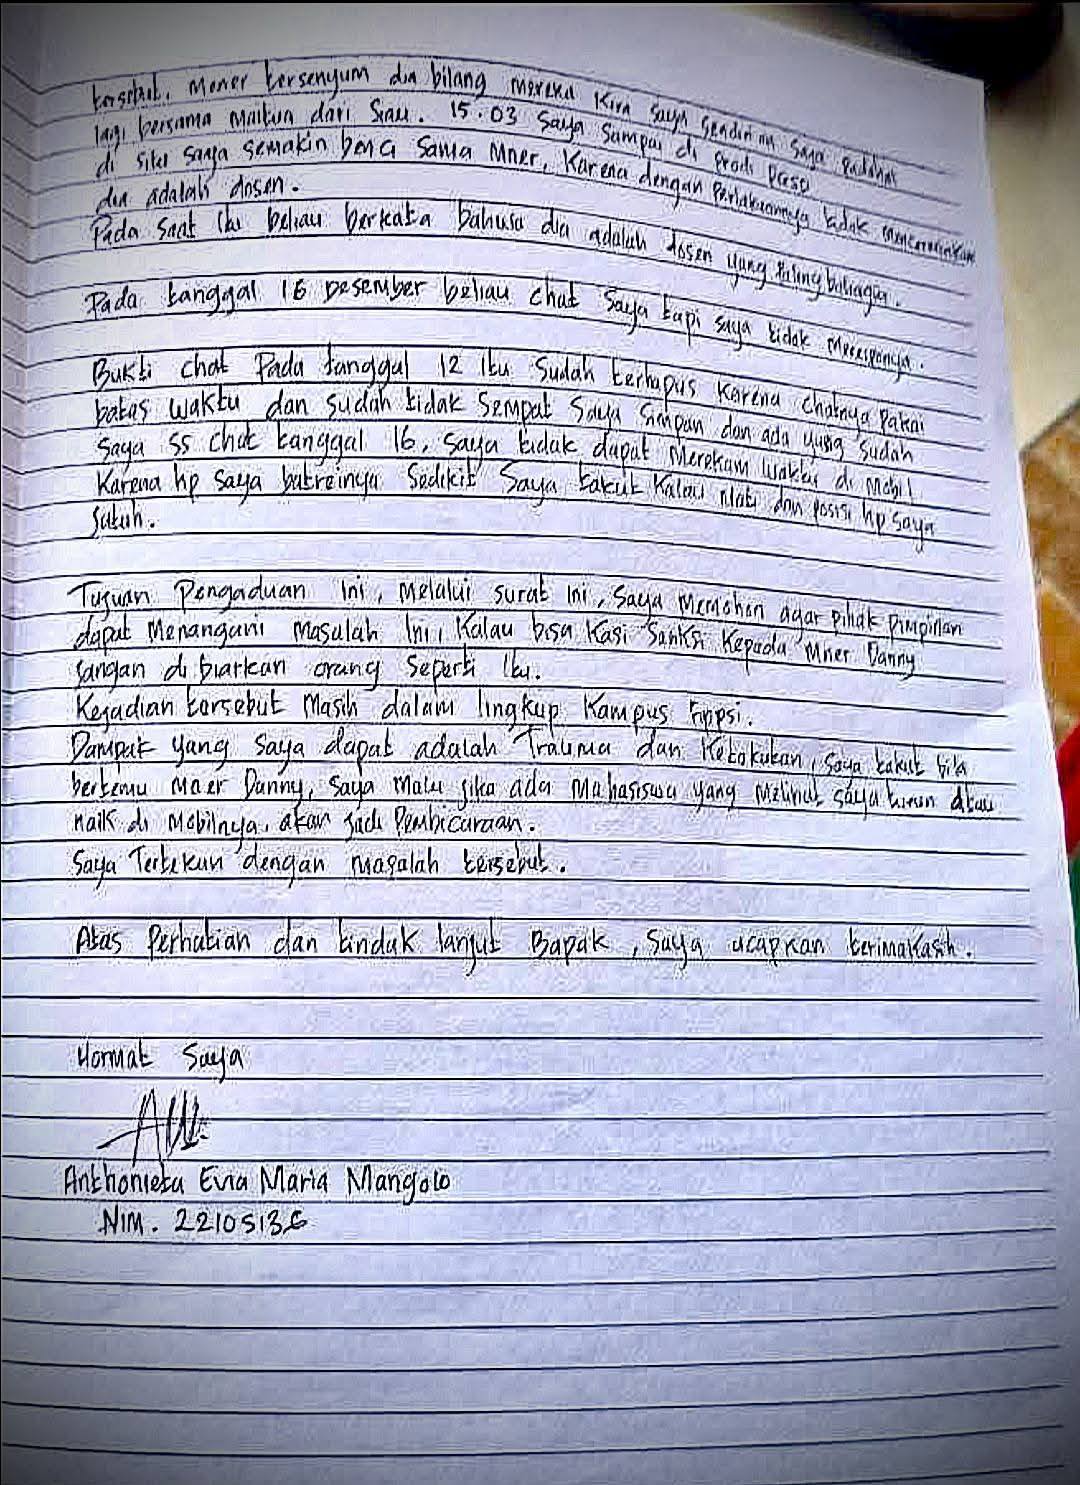 tersebut. Mener tersenyum dia bilang mereka kira saya sendirian saya padahal
lagi bersama Maitua dari Siau. 15.03 saya sampai di prodi PGSD
di situ saya semakin benci sama Mner, Karena dengan perlakuannya tidak mencerminkan
dia adalah dosen.
Pada saat itu beliau berkata bahwa dia adalah dosen yang paling bahagia.
Pada tanggal 16 Desember beliau chat saya tapi saya tidak meresponya.
Bukti chat Pada tanggal 12 itu sudah terhapus karena chatnya pakai
batas waktu dan sudah tidak sempat saya simpan dan ada yang sudah
saya ss chat tanggal 16, saya tidak dapat merekam waktu di mobil
Karena hp saya batreinya sedikit saya takut kalau mati dan posisi hp saya
jatuh.
Tujuan Pengaduan ini, Melalui surat ini, saya memohon agar pihak pimpinan
dapat Menangani masalah ini, Kalau bisa kasi sanksi kepada Mner Danny
jangan di biarkan orang seperti itu.
Kejadian tersebut Masih dalam lingkup kampus Fippsi.
Dampak yang saya dapat adalah Trauma dan Ketakutan, saya takut bila
bertemu Mner Danny, saya malu jika ada mahasiswa yang melihat saya turun atau
naik di mobilnya, akan jadi Pembicaraan.
Saya Tertekan dengan masalah tersebut.
Atas Perhatian dan tindak lanjut Bapak, saya ucapkan terimakasih.
Hormat Saya
Anthonieta Evia Maria Mangolo
NIM. 22105136